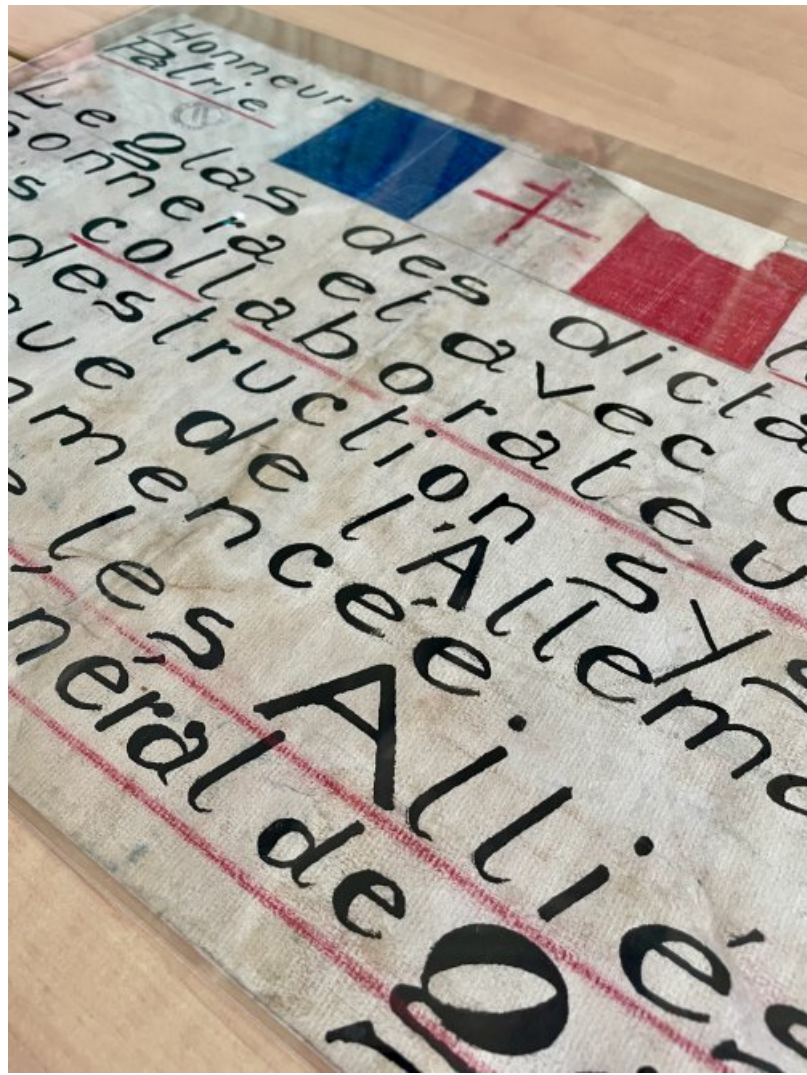 Honneur
Patrie
Le glas des dicta
sonnera et avec
s collaborateu
destruction sys
ue de l'Allema
mencée
les Alliés
néral de